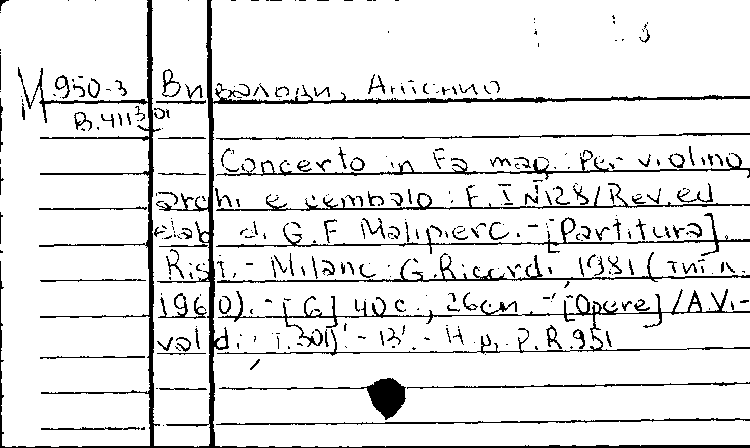 М 950-3 Вивалоди, Антонио
В.4113/01
Concerto in Fa mag.: Per violino,
archi e cembalo: F.I N128/Rev.ed
elab di G.F Malipiero.-[Partitura].
Rist.- Milano: G.Ricordi, 1981 (тит л.
1960).-[6] 40c., 26cm.-[Opere]/A.Vi-
valdi; T.301).- 13'.- Н.д. P.R.951